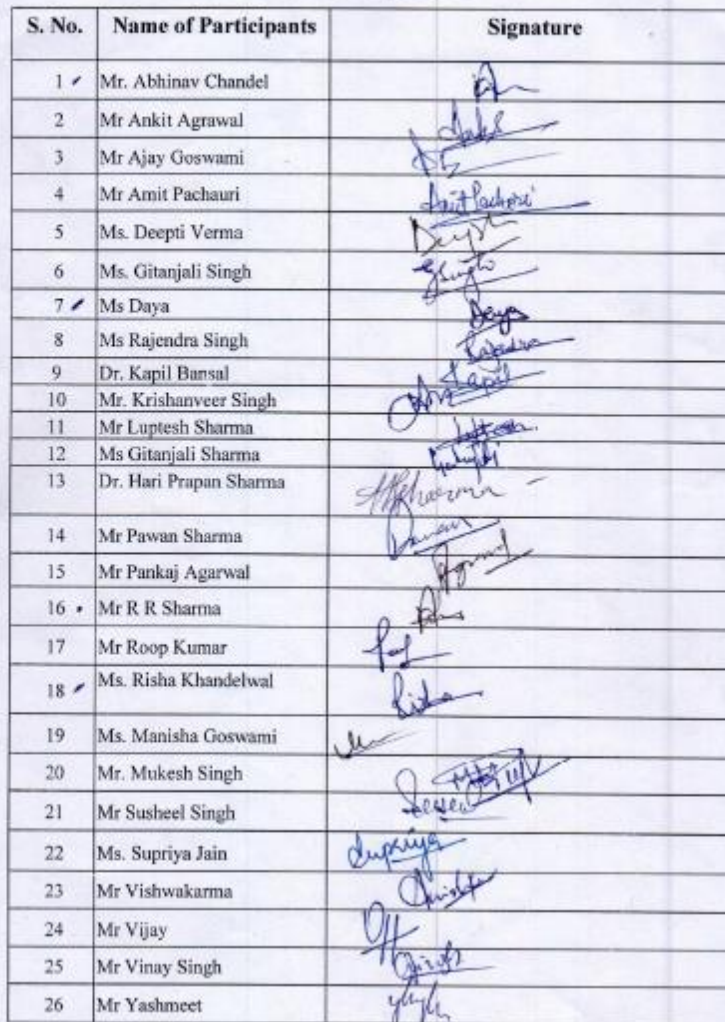 S. No. Name of Participants Signature
1 Mr. Abhinav Chandel
2 Mr Ankit Agrawal
3 Mr Ajay Goswami
4 Mr Amit Pachauri Amit Pachori
5 Ms. Deepti Verma
6 Ms. Gitanjali Singh GSingh
7 Ms Daya Daya
8 Ms Rajendra Singh Rajendra
9 Dr. Kapil Bansal Kapil
10 Mr. Krishanveer Singh
11 Mr Luptesh Sharma
12 Ms Gitanjali Sharma
13 Dr. Hari Prapan Sharma HPSharma
14 Mr Pawan Sharma Pawan
15 Mr Pankaj Agarwal
16 Mr R R Sharma
17 Mr Roop Kumar
18 Ms. Risha Khandelwal Risha
19 Ms. Manisha Goswami
20 Mr. Mukesh Singh
21 Mr Susheel Singh
22 Ms. Supriya Jain Supriya
23 Mr Vishwakarma
24 Mr Vijay
25 Mr Vinay Singh
26 Mr Yashmeet